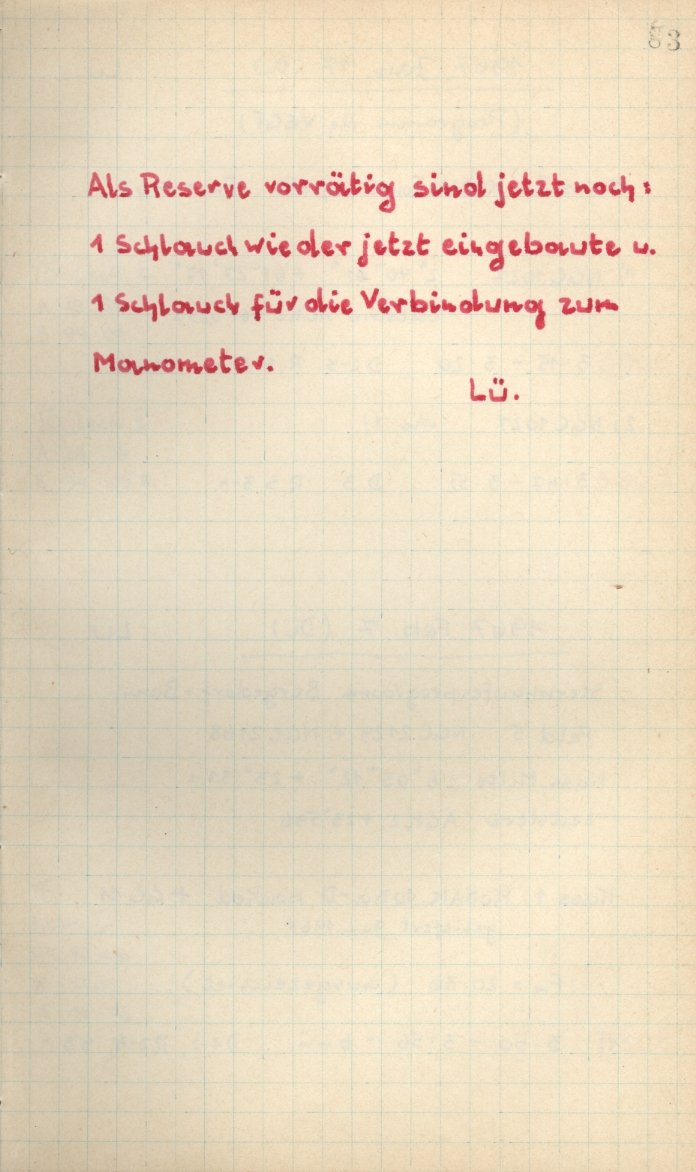 83
Als Reserve vorrätig sind jetzt noch:
1 Schlauch wie der jetzt eingebaute u.
1 Schlauch für die Verbindung zum
Manometer.
Lü.